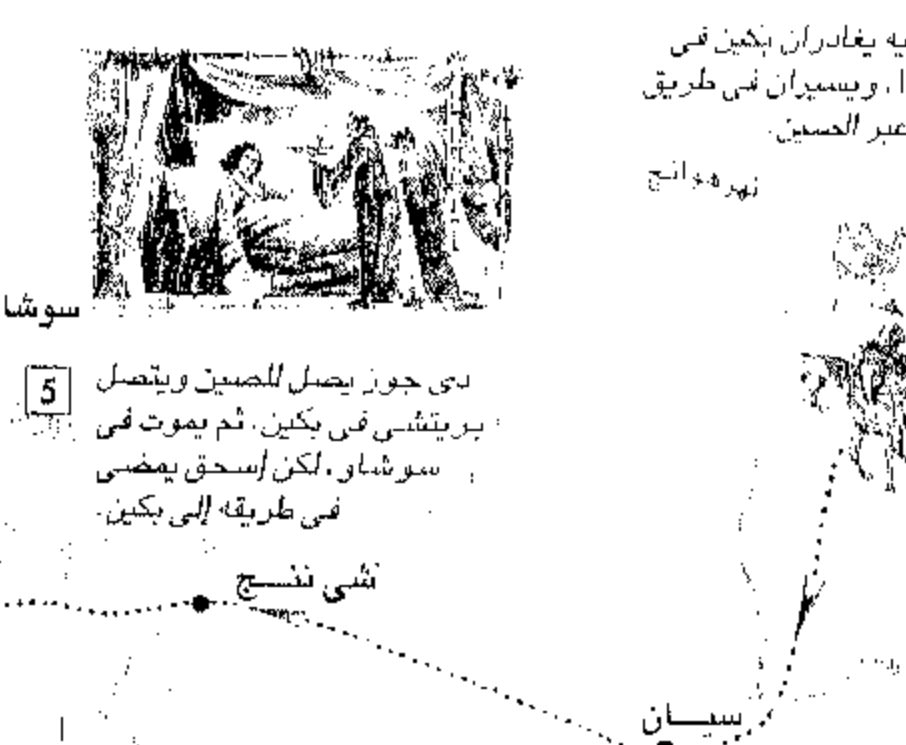 يه يغادران بكين في
ا، ويسيران في طريق
عبر الحسين.
نهر هوانج
سوشا
5
دى جوز يصل للصين ويتصل
بريتشى فى بكين. ثم يموت فى
سوشاو، لكن إسحق يمضى
فى طريقه إلى بكين.
نشى ننسج
سيان